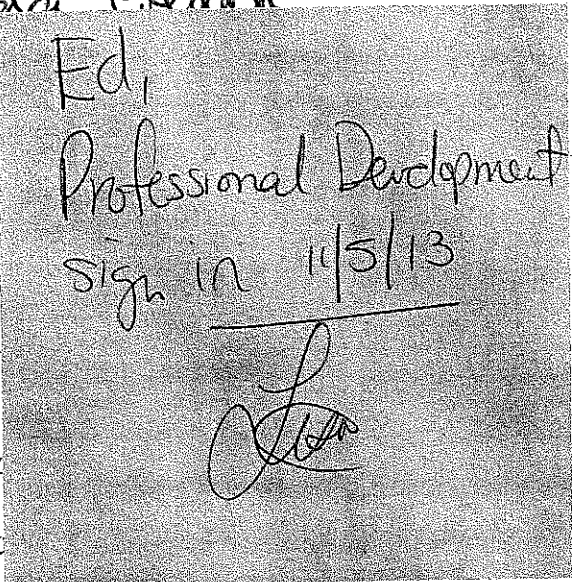 Ed,
Professional Development
sign in 11/5/13